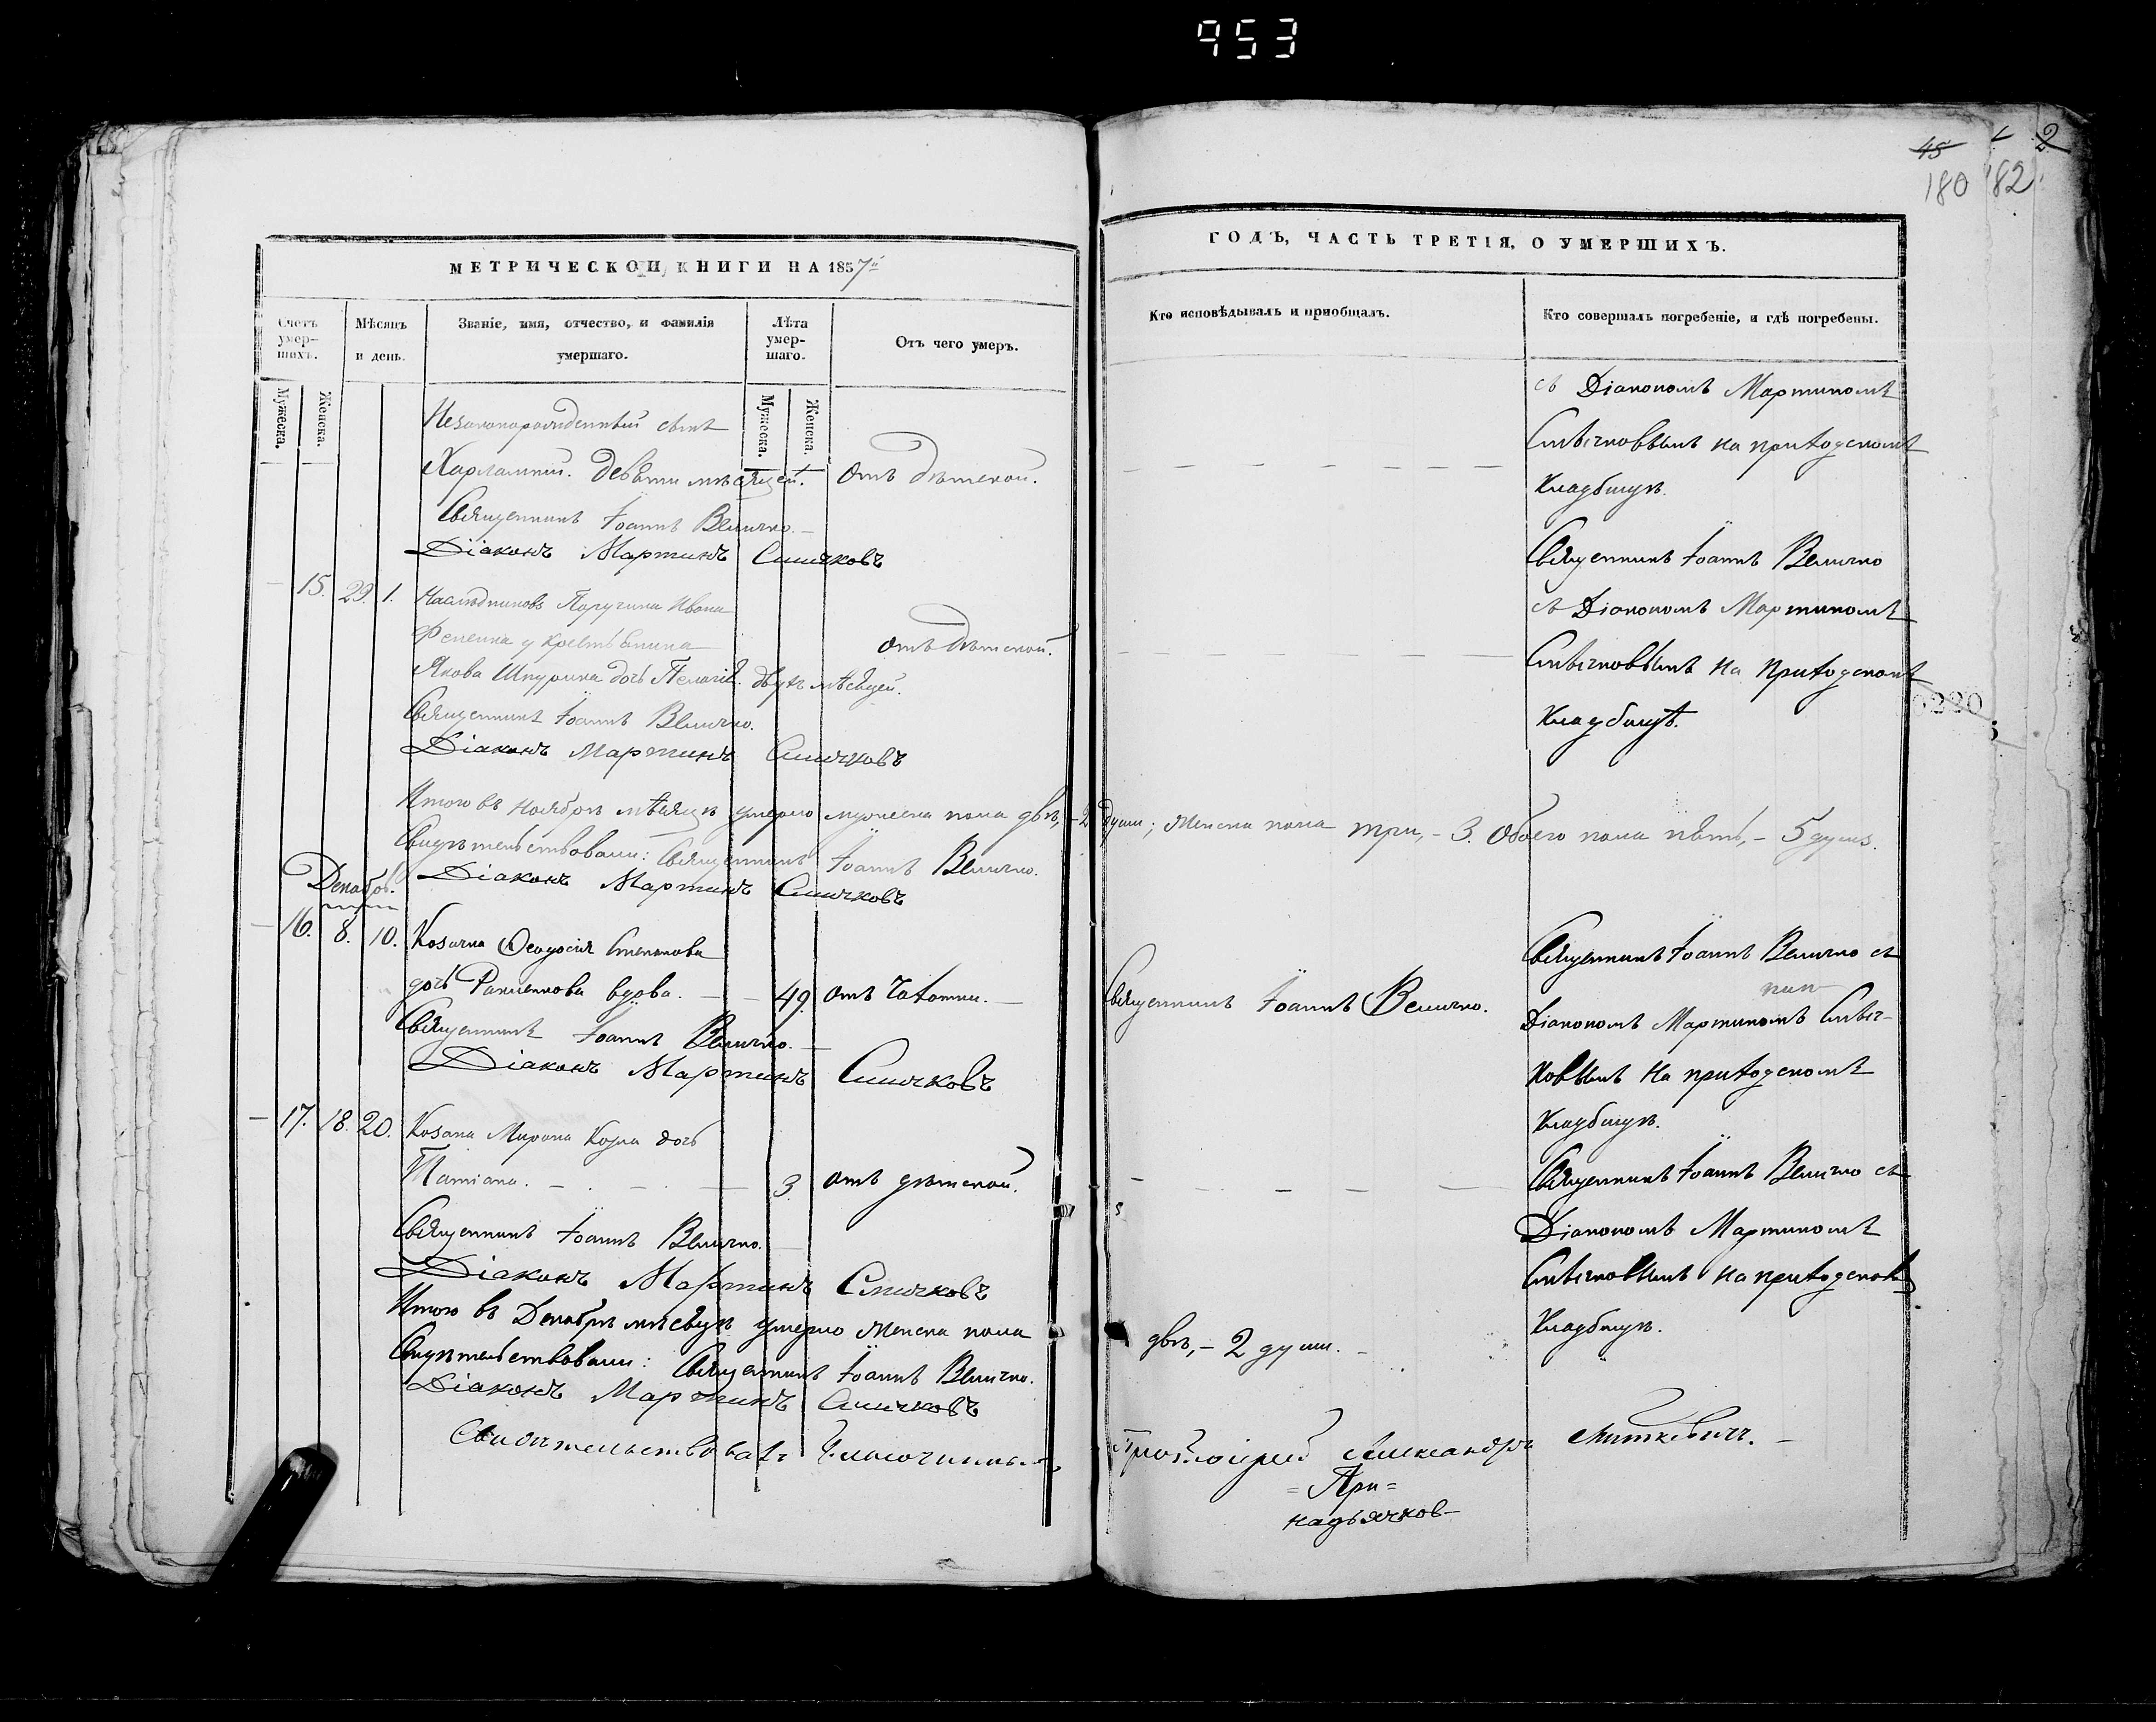 953
45 2
180 182
МЕТРИЧЕСКОЙ КНИГИ НА 1857й
Счетъ умер-шихъ.
Мѣсяцъ и день.
Званіе, имя, отчество, и фамилія умершаго.
Лѣта умер-шаго.
Отъ чего умеръ.
Мужеска.
Женска.
Мужеска.
Женска.
Незаконорожденный сынъ
Харлампій. Девяти мѣсяцей. Отъ дѣтской.
Священникъ Іоаннъ Величко.
Діаконъ Мартинъ Смычковъ
15. 29. 1. Наслѣдниковъ Поручика Ивана
у крестьянина
отъ дѣтской.
Якова Шпурика дочь Пелагія. двухъ мѣсяцей.
Священникъ Іоаннъ Величко.
Діаконъ Мартинъ Смычковъ
Итого въ Ноябрѣ мѣсяцѣ умерло мужеска пола двѣ, - 2
Свидѣтельствовали: Священникъ Іоаннъ Величко.
Діаконъ Мартинъ Смычковъ
Декабрь.
16. 8. 10. Козачка Ѳеодосія Степанова
дочь вдова. 49. отъ Чахотки.
Священникъ Іоаннъ Величко.
Діаконъ Мартинъ Смычковъ
17. 18. 20. Козака Мирона Козла дочь
Татіана. 3. отъ дѣтской.
Священникъ Іоаннъ Величко.
Діаконъ Мартинъ Смычковъ
Итого въ Декабрѣ мѣсяцѣ умерло Женска пола
Свидѣтельствовали: Священникъ Іоаннъ Величко.
Діаконъ Мартинъ Смычковъ
Свидѣтельствовалъ Благочинный
ГОДЪ, ЧАСТЬ ТРЕТІЯ, О УМЕРШИХЪ.
Кто исповѣдывалъ и пріобщалъ.
Кто совершалъ погребеніе, и гдѣ погребены.
съ Діакономъ Мартиномъ
Смычковымъ на приходскомъ
Кладбищѣ.
Священникъ Іоаннъ Величко
съ Діакономъ Мартиномъ
Смычковымъ на приходскомъ
Кладбищѣ.
души; Женска пола три, - 3. Обоего пола пять, - 5 душъ.
Священникъ Іоаннъ Величко съ
Священникъ Іоаннъ Величко.
Діакономъ Мартиномъ Смыч-
ковымъ на приходскомъ
Кладбищѣ.
Священникъ Іоаннъ Величко съ
Діакономъ Мартиномъ
Смычковымъ на приходском
Кладбищѣ.
двѣ, - 2 души.
Протоіерей Александръ Миткевичъ.